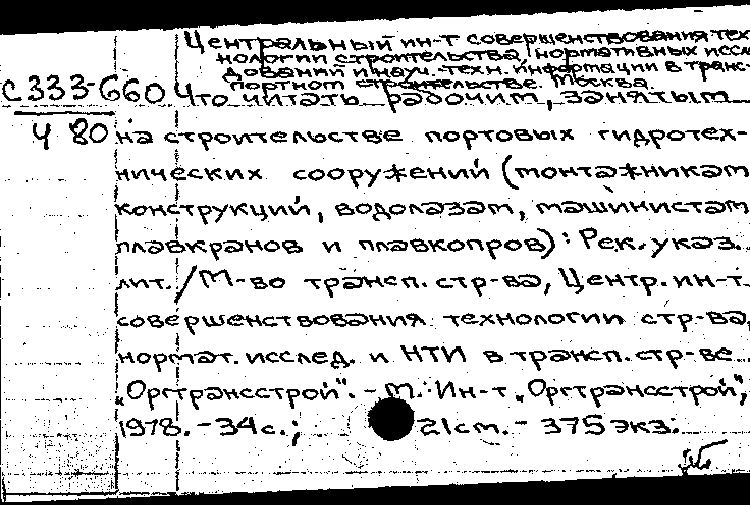 Центральный ин-т совершенствования тех
нологии строительства, нормативных иссле
дований и науч.-техн. информации в транс-
портном строительстве. Москва.
С333-660 Что читать рабочим, занятым
Ч 80 на строительстве портовых гидротех-
нических сооружений (монтажникам
конструкций, водолазам, машинистам
плавкранов и плавкопров): Рек. указ.
лит. / М-во трансп. стр-ва, Центр. ин-т
совершенствования технологии стр-ва,
нормат. исслед. и НТИ в трансп. стр-ве
„Оргтрансстрой". - М.: Ин-т „Оргтрансстрой",
1978. - 34 с.; 21 см. - 375 экз.